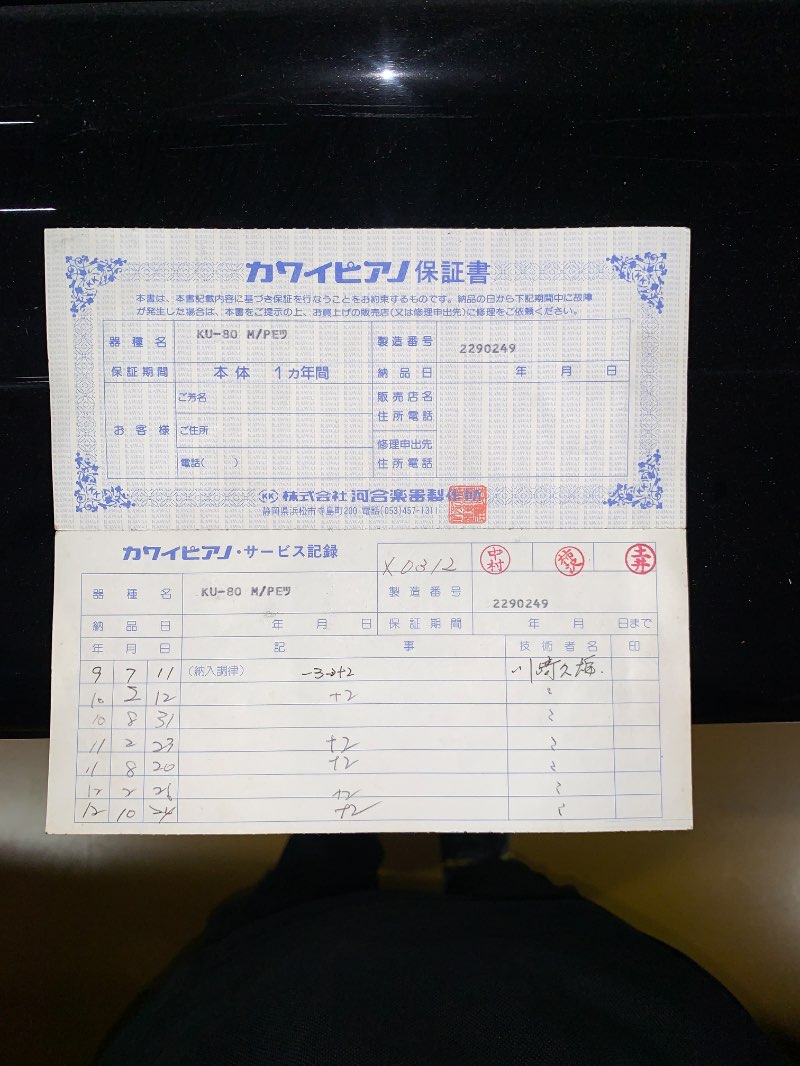 カワイピアノ保証書
本書は、本書記載内容に基づき保証を行なうことをお約束するものです。納品の日から下記期間中に故障
が発生した場合は、本書をご提示の上、お買上げの販売店(又は修理申出先)に修理をご依頼ください。
器種名 KU-80 M/PEﾂ 製造番号 2290249
保証期間 本体 1ヵ年間 納品日 年 月 日
お客様 ご芳名 販売店名
住所電話
ご住所 修理申出先
電話( ) 住所電話
KK 株式会社 河合楽器製作所
静岡県浜松市寺島町200 電話(053)457-1311
カワイピアノ・サービス記録
X0312 中村 土井
器種名 KU-80 M/PEﾂ 製造番号 2290249
納品日 年 月 日 保証期間 年 月 日まで
年 月 日 記事 技術者名 印
9 7 11 (納入調律) -3→+2 川崎久
10 2 12 +2 〻
10 8 31 〻
11 2 23 +2 〻
11 8 20 +2 〻
12 2 26 +2 〻
12 10 24 +2 〻